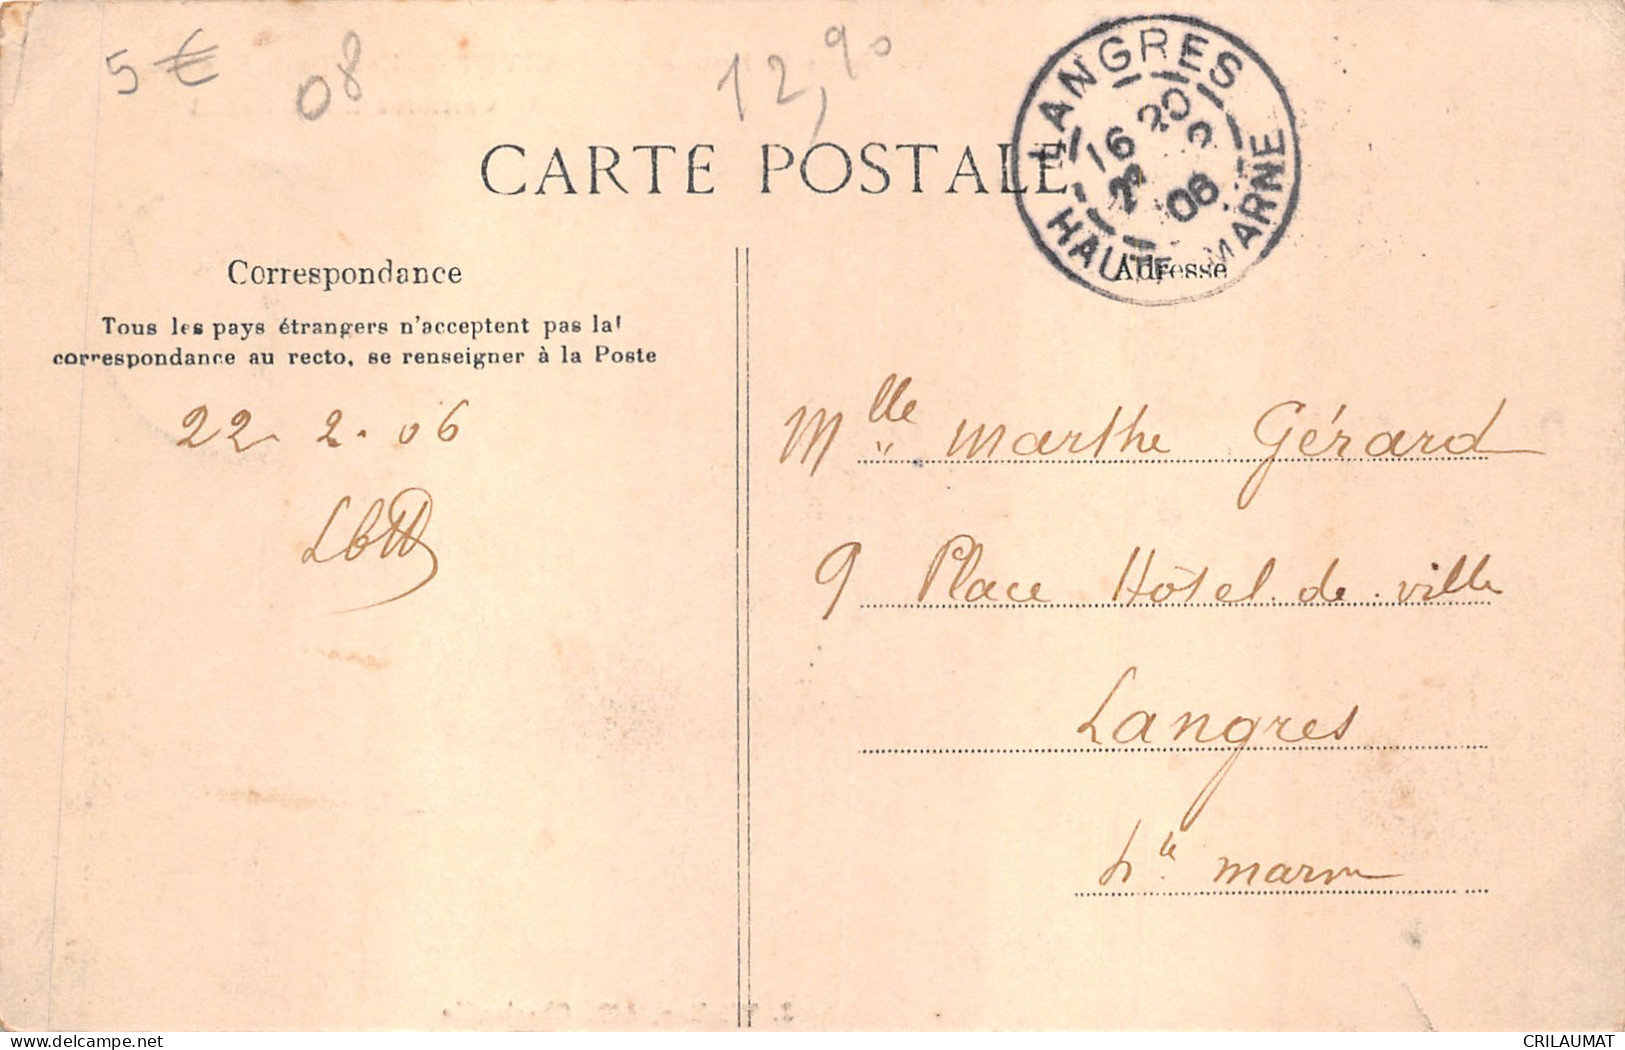 5 €
08
12,90
CARTE POSTALE
LANGRES
16 20
06
HAUTE MARNE
Correspondance
Tous les pays étrangers n'acceptent pas la
correspondance au recto, se renseigner à la Poste
22 2. 06
Adresse
Mlle Marthe Gérard
9 Place Hôtel de ville
Langres
hte marne
delcampe.net
CRILAUMAT